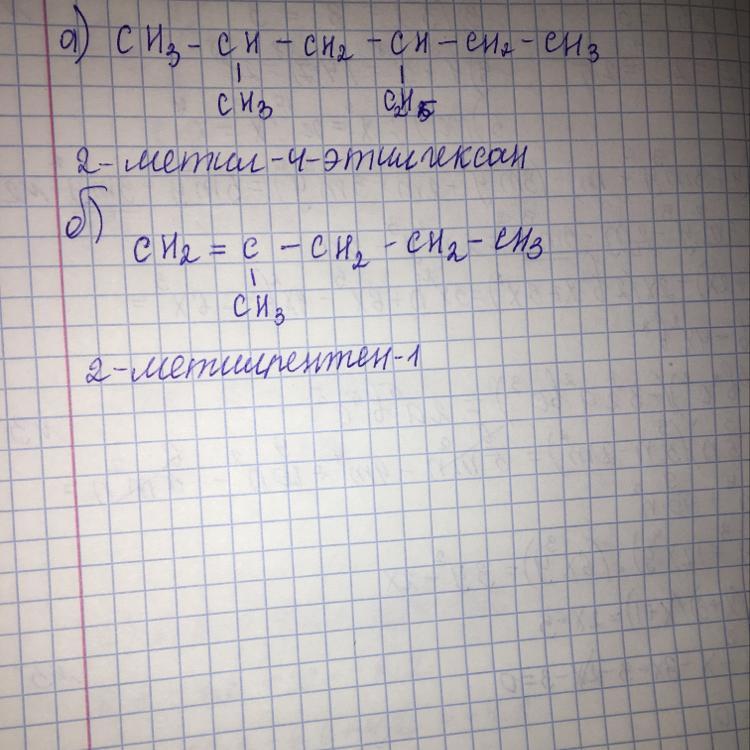 а) CH3 - CH - CH2 - CH - CH2 - CH3
CH3 C2H5
2-метил-4-этилгексан
б)
CH2 = C - CH2 - CH2 - CH3
CH3
2-метилпентен-1